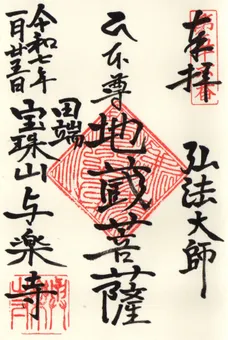 奉拝
弘法大師
御本尊
地蔵菩薩
田端
宝珠山与楽寺
令和七年
一月廿三日